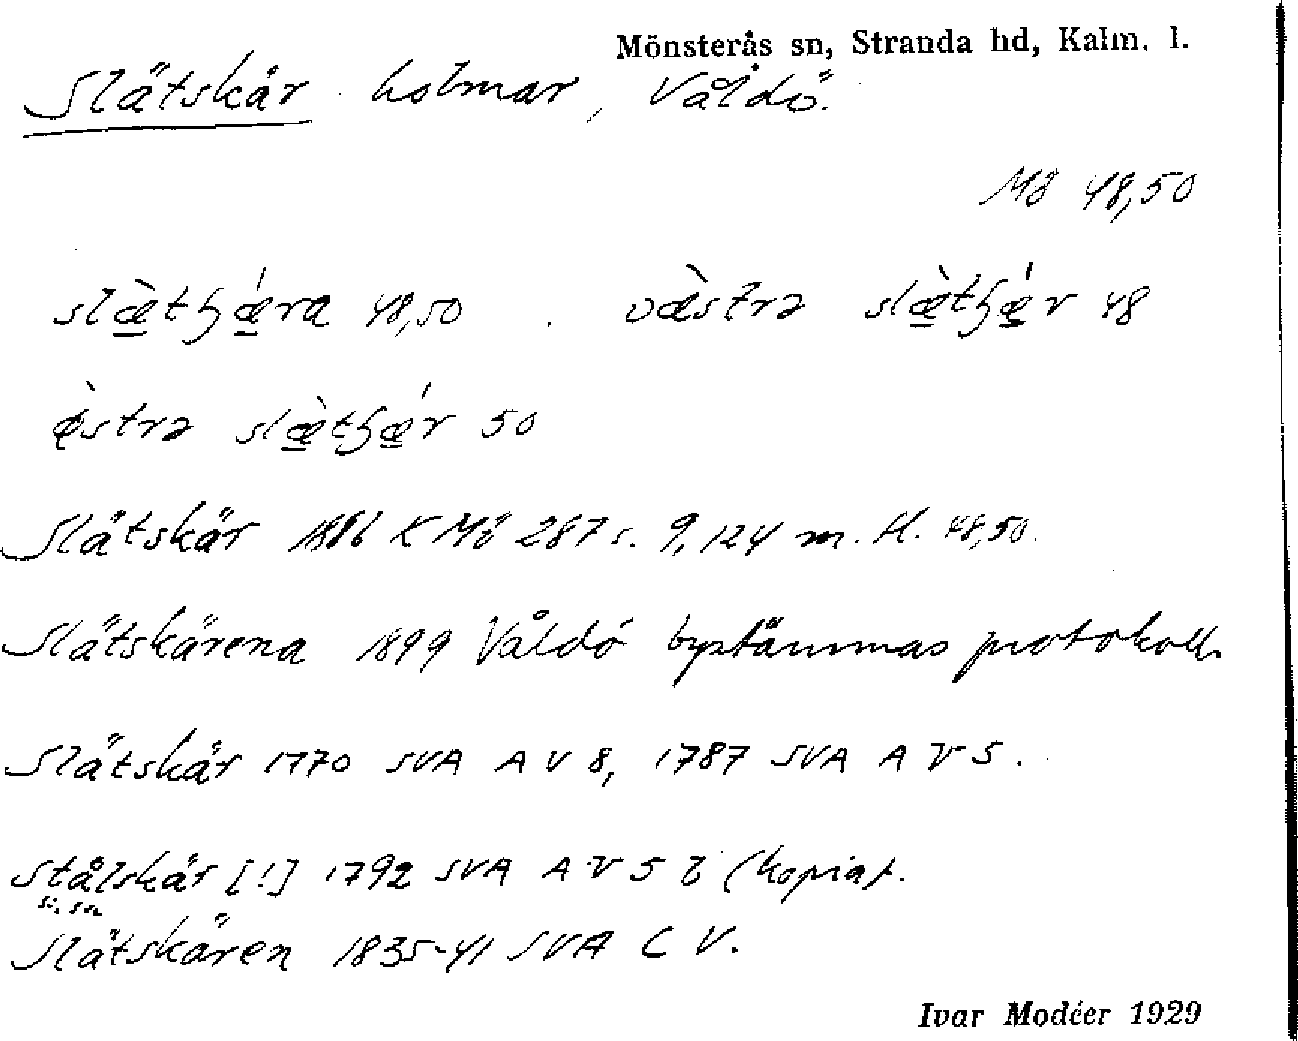 Mönsterås sn, Stranda hd, Kalm. l.
Slätskär holmar, Våldö.
Mö 48,50
slæ̀tʃǽra 48,50 . væ̀strə slæ̀tʃǽr 48
ø̀strə slæ̀tʃǽr 50
Slätskär 1886 K Mö 287 s. 9, 124 m. fl. 48,50.
Slätskärena 1899 Våldö bystämmas protokoll.
Slätskär 1770 SVA A V 8, 1787 SVA A V 5.
Stålskär [!] 1792 SVA A V 5 b (kopia).
Slätskären 1835-41 SVA C V.
Ivar Modéer 1929